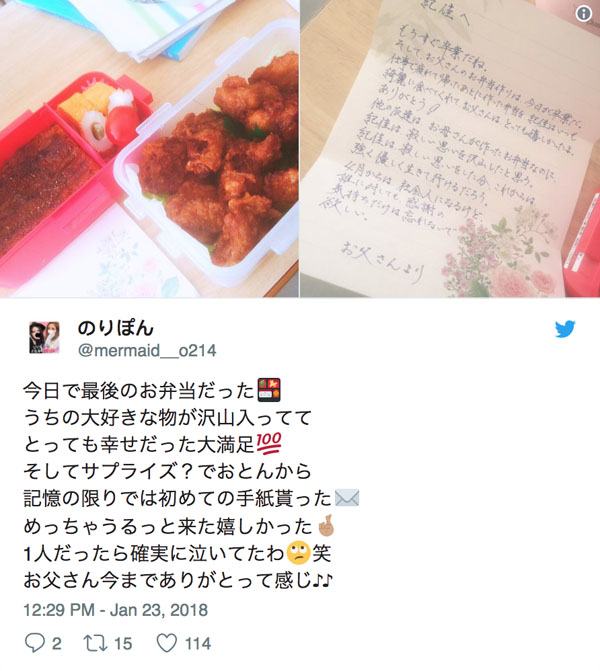 紀佳へ
もうすぐ卒業だね。
そして、お父さんのお弁当作りは、今日が卒業だ。
仕事で疲れて帰ったあとに作った弁当を 紀佳はいつも
綺麗に食べてくれてお父さんは、とても嬉しかったよ。
ありがとう!
他の友達は、お母さんが作ったお弁当なのに、
紀佳は、寂しい思いを沢山したと思う。
紀佳は、寂しい思いをした分、これからは、
強く優しく生きて行けるだろう。
4月からは、社会人になるけど、
誰に対しても、感謝の
気持ちだけは忘れないで
欲しい。
お父さんより
のりぽん
@mermaid__o214
今日で最後のお弁当だった🍱
うちの大好きな物が沢山入ってて
とっても幸せだった大満足💯
そしてサプライズ？でおとんから
記憶の限りでは初めての手紙貰った✉️
めっちゃうるっと来た嬉しかった🤞🏽
1人だったら確実に泣いてたわ🙄笑
お父さん今までありがとって感じ♪♪
12:29 PM - Jan 23, 2018
2 15 114